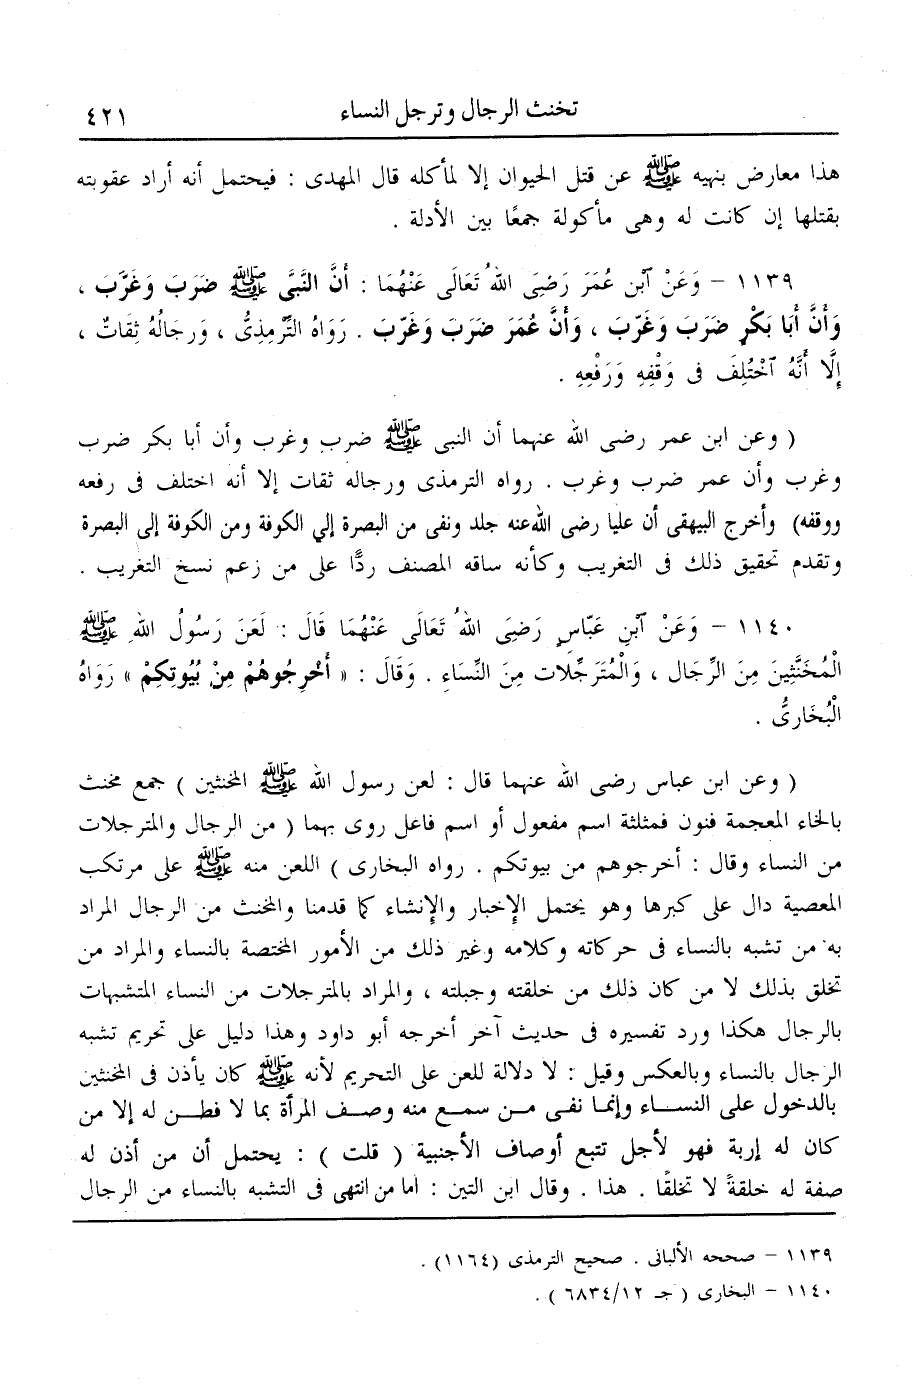 تخنث الرجال وترجل النساء ٤٢١
هذا معارض بنهيه ﷺ عن قتل الحيوان إلا لمأكله قال المهدى : فيحتمل أنه أراد عقوبته
بقتلها إن كانت له وهى مأكولة جمعًا بين الأدلة .
١١٣٩ – وَعَنْ آبْنِ عُمَرَ رَضِىَ اللهُ تَعَالَى عَنْهُمَا : أَنَّ النَّبِىَّ ﷺ ضَرَبَ وَغَرَّبَ ،
وَأَنَّ أَبَا بَكْرٍ ضَرَبَ وَغَرَّبَ ، وَأَنَّ عُمَرَ ضَرَبَ وَغَرَّبَ . رَوَاهُ التِّرْمِذِىُّ ، وَرِجَالُهُ ثِقَاتٌ ،
إِلَّا أَنَّهُ آخْتُلِفَ فِى وَقْفِهِ وَرَفْعِهِ .
( وعن ابن عمر رضى الله عنهما أن النبى ﷺ ضرب وغرب وأن أبا بكر ضرب
وغرب وأن عمر ضرب وغرب . رواه الترمذى ورجاله ثقات إلا أنه اختلف فى رفعه
ووقفه) وأخرج البيهقى أن عليا رضى الله عنه جلد ونفى من البصرة إلي الكوفة ومن الكوفة إلى البصرة
وتقدم تحقيق ذلك فى التغريب وكأنه ساقه المصنف ردًّا على من زعم نسخ التغريب .
١١٤٠ – وَعَنْ آبْنِ عَبَّاسٍ رَضِىَ اللهُ تَعَالَى عَنْهُمَا قَالَ : لَعَنَ رَسُولُ اللهِ ﷺ
الْمُخَنَّثِينَ مِنَ الرِّجَالِ ، وَالْمُتَرَجِّلَاتِ مِنَ النِّسَاءِ . وَقَالَ : « أَخْرِجُوهُمْ مِنْ بُيُوتِكِمْ » رَوَاهُ
الْبُخَارِىُّ .
( وعن ابن عباس رضى الله عنهما قال : لعن رسول الله ﷺ المخنثين ) جمع مخنث
بالخاء المعجمة فنون فمثلثة اسم مفعول أو اسم فاعل روى بهما ( من الرجال والمترجلات
من النساء وقال : أخرجوهم من بيوتكم . رواه البخارى ) اللعن منه ﷺ على مرتكب
المعصية دال على كبرها وهو يحتمل الإخبار والإنشاء كما قدمنا والمخنث من الرجال المراد
به من تشبه بالنساء فى حركاته وكلامه وغير ذلك من الأمور المختصة بالنساء والمراد من
تخلق بذلك لا من كان ذلك من خلقته وجبلته ، والمراد بالمترجلات من النساء المتشبهات
بالرجال هكذا ورد تفسيره فى حديث آخر أخرجه أبو داود وهذا دليل على تحريم تشبه
الرجال بالنساء وبالعكس وقيل : لا دلالة للعن على التحريم لأنه ﷺ كان يأذن فى المخنثين
بالدخول على النساء وإنما نفى من سمع منه وصف المرأة بما لا فطن له إلا من
كان له إربة فهو لأجل تتبع أوصاف الأجنبية ( قلت ) : يحتمل أن من أذن له
صفة له خلقةً لا تخلقًا . هذا . وقال ابن التين : أما من انتهى فى التشبه بالنساء من الرجال
١١٣٩ – صححه الألبانى . صحيح الترمذى (١١٦٤) .
١١٤٠ – البخارى ( جـ ٦٨٣٤/١٢ ) .